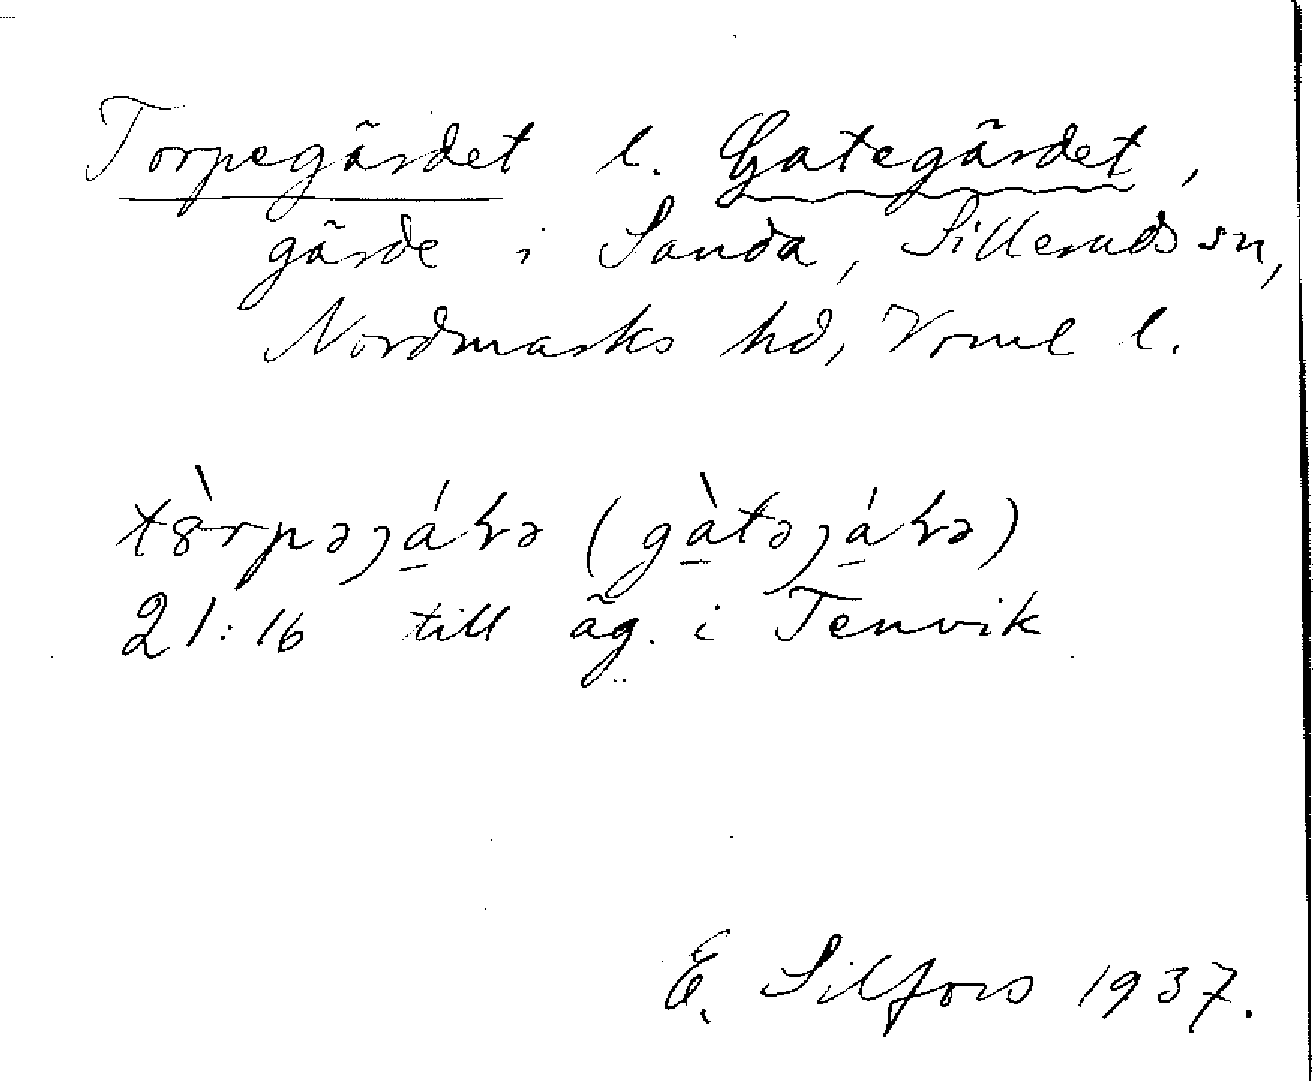 Torpegärdet l. Gategärdet,
gärde i Sanda, Silleruds sn,
Nordmarks hd, Vrml l.
tȣ̀rpəȷáƕə (gàtəȷáƕə)
21:16 till äg. i Tenvik
E. Silfors 1937.